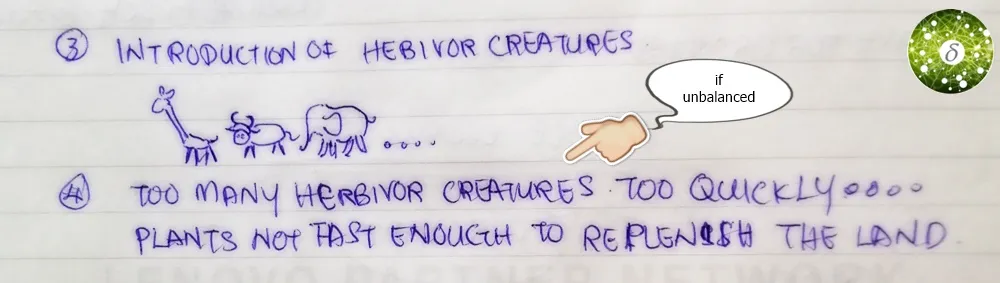 ③ INTRODUCTION OF HEBIVOR CREATURES
if
unbalanced
δ
④ TOO MANY HERBIVOR CREATURES. TOO QUICKLY....
PLANTS NOT FAST ENOUGH TO REPLENISH THE LAND.
LENOVO PARTNER NETWORK